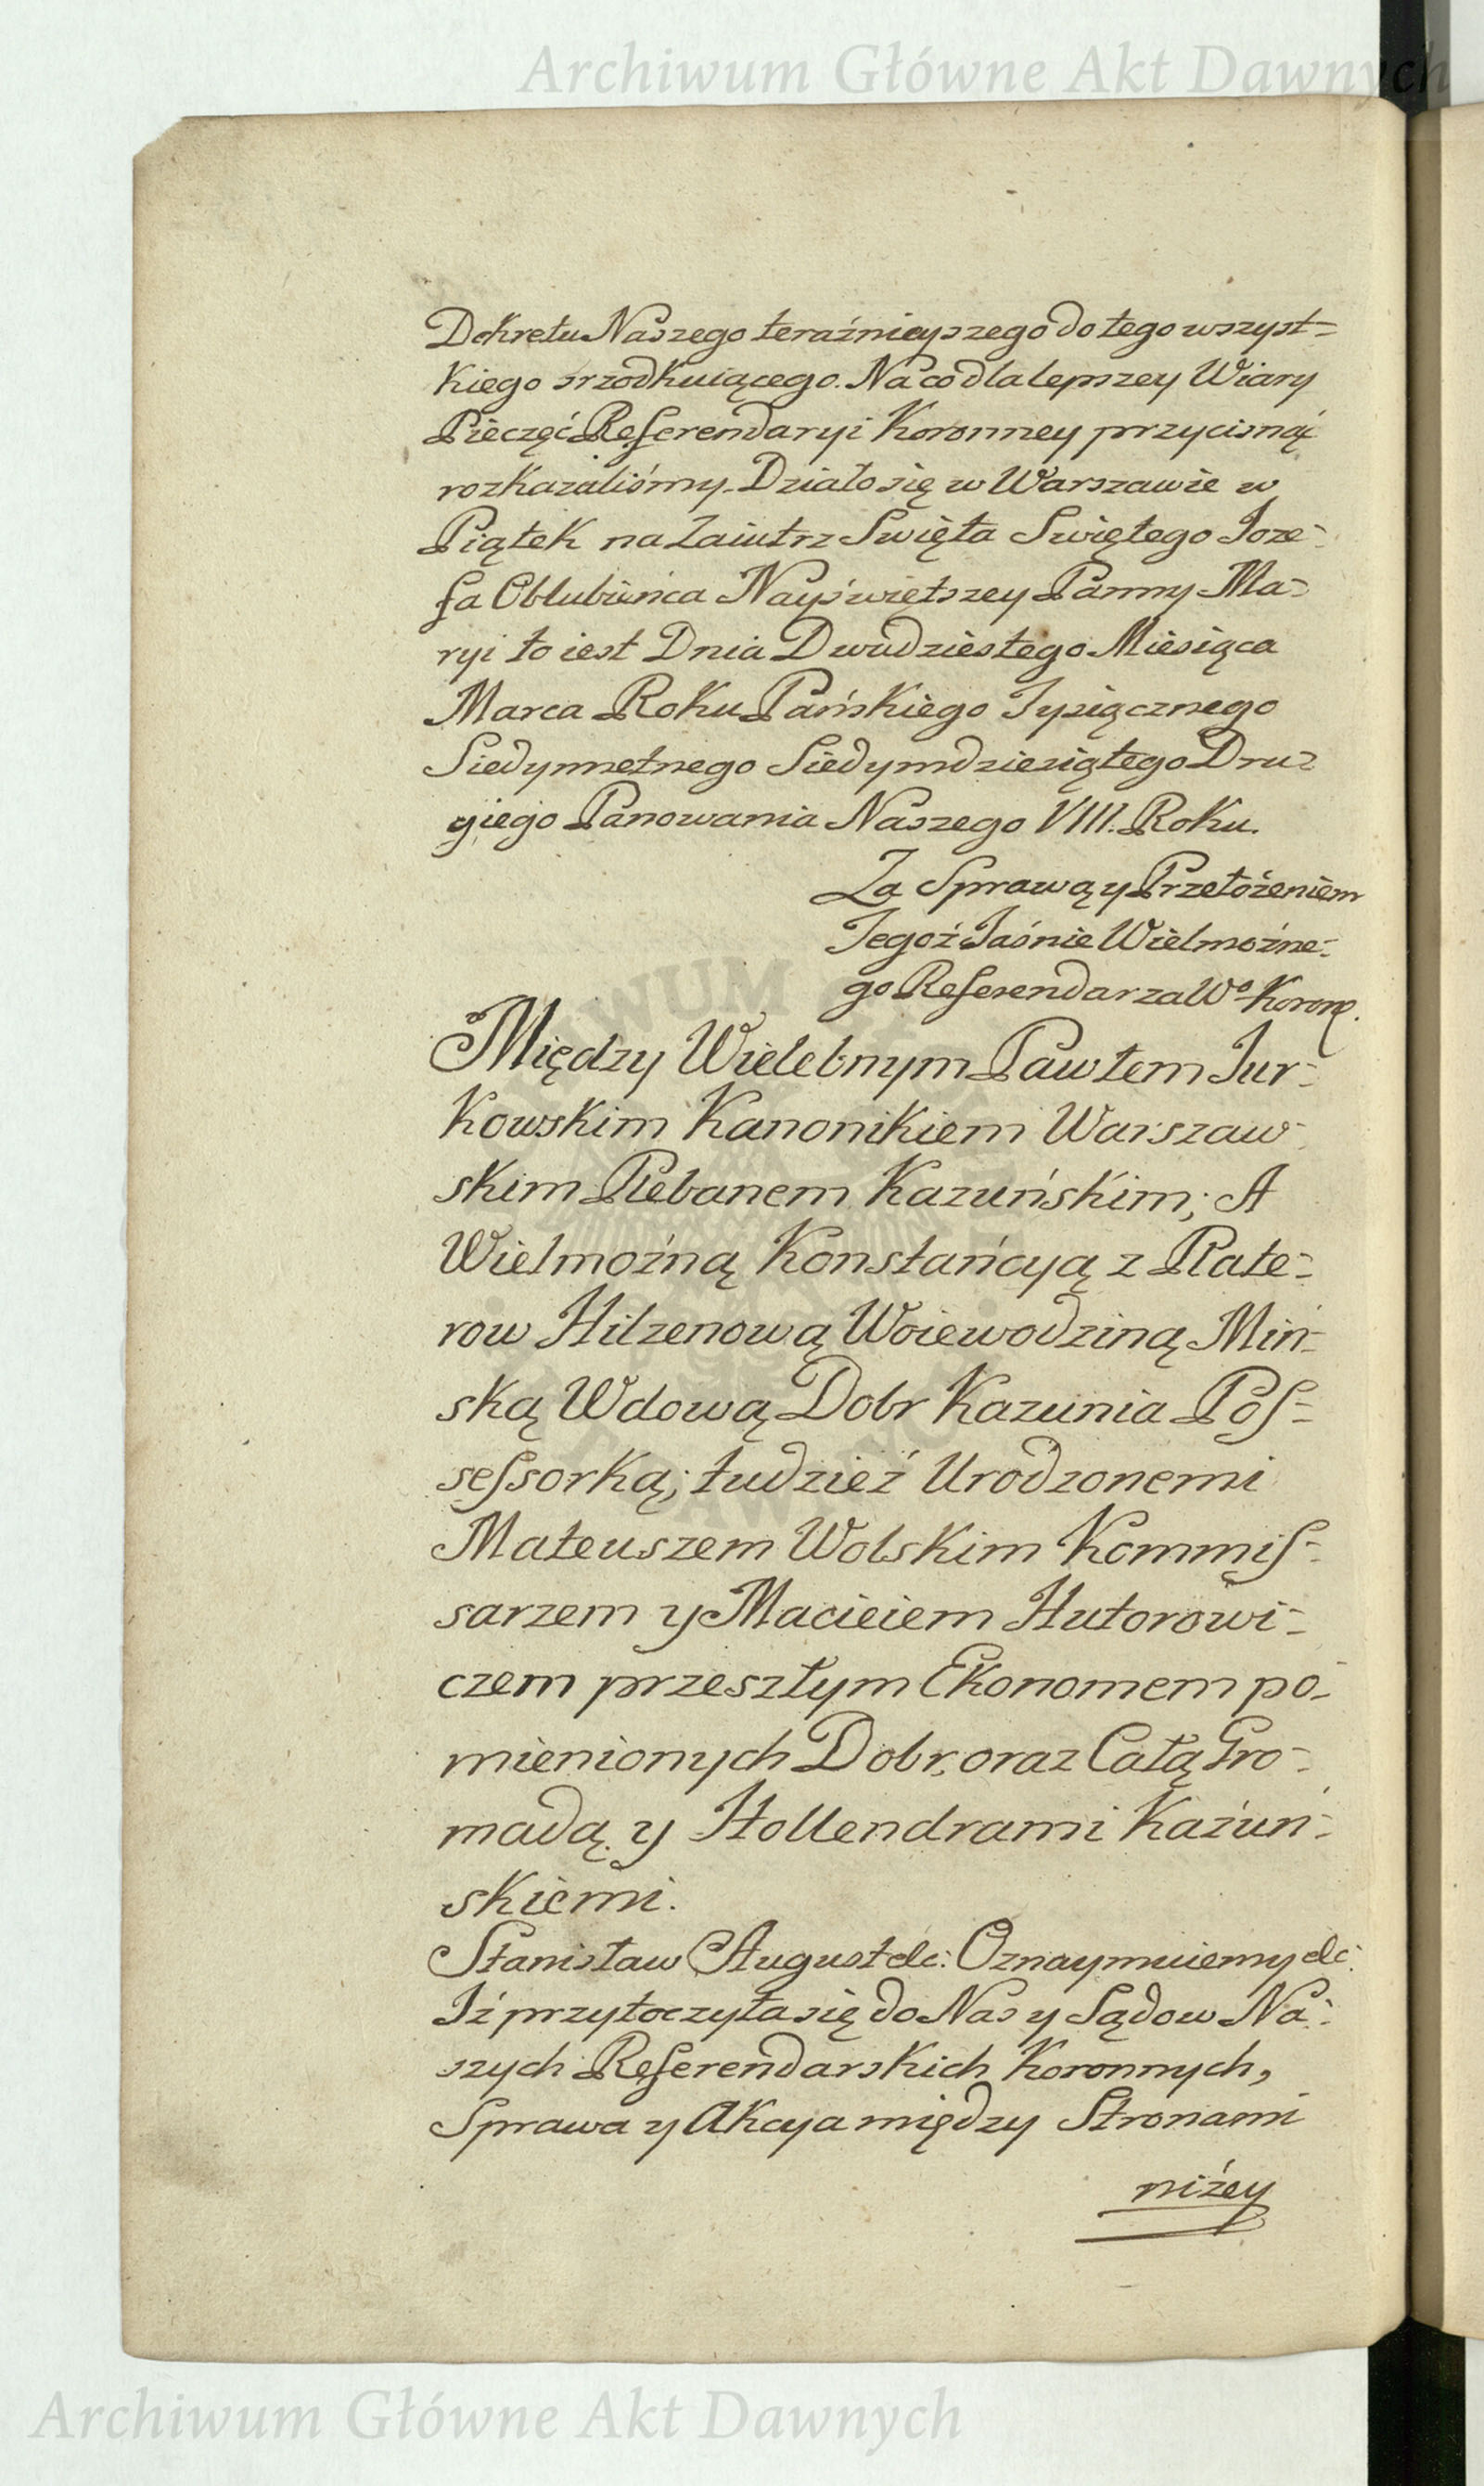 Archiwum Główne Akt Dawnych
Dekretu Naszego teraźnieyszego do tego wszyst=
kiego srzodkuiącego. Na co dla lepszey Wiary
Pieczęć Referendaryi Koronney przycisnąć
rozkazaliśmy. Działo się w Warszawie w
Piątek na Zaiutrz Swięta Swiętego Joze=
fa Oblubieńca Nayświętszey Panny Ma=
ryi to iest Dnia Dwudziestego Miesiąca
Marca Roku Pańskiego Tysiącznego
Siedymsetnego Siedymdziesiątego Dru=
giego Panowania Naszego VIII. Roku.
Za Sprawą y Przełożeniem
Jegoż Jaśnie Wielmożne=
go Referendarza Wo Koronn.
Między Wielebnym Pawłem Jur=
kowskim Kanonikiem Warszaw=
skim Plebanem Kazuńskim; A
Wielmożną Konstańcyą z Plate=
row Hilzenową Woiewodziną Miń=
ską Wdową Dobr Kazunia Pos=
sessorką; tudzież Urodzonemi
Mateuszem Wolskim Kommis=
sarzem y Macieiem Hutorowi=
czem przeszłym Ekonomem po=
mienionych Dobr, oraz Całą Gro=
madą y Hollendrami Kaźuń=
skiemi.
Stanisław August etc: Oznaymuiemy etc:
Iż przytoczyła się do Nas y Sądow Na=
szych Referendarskich Koronnych,
Sprawa y Akcya między Stronami
niżey
Archiwum Główne Akt Dawnych